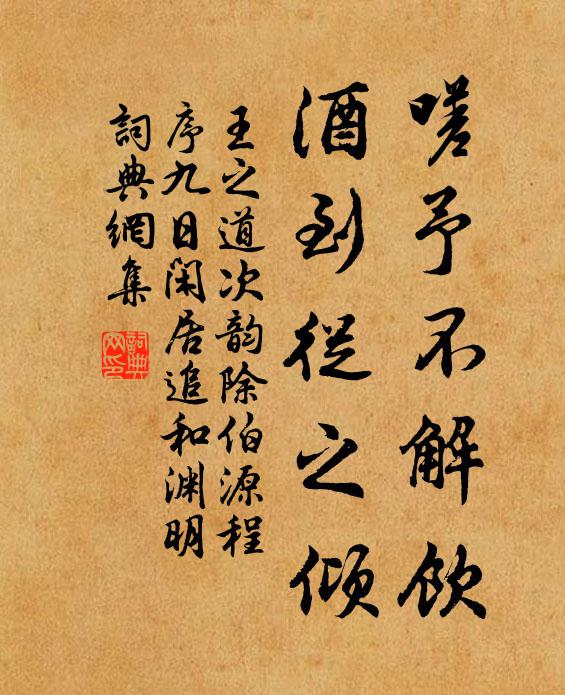 嗟予不解飲
酒到從之傾
王之道次韵除伯源程
序九日閑居追和渊明
詞典網集
詞典网印